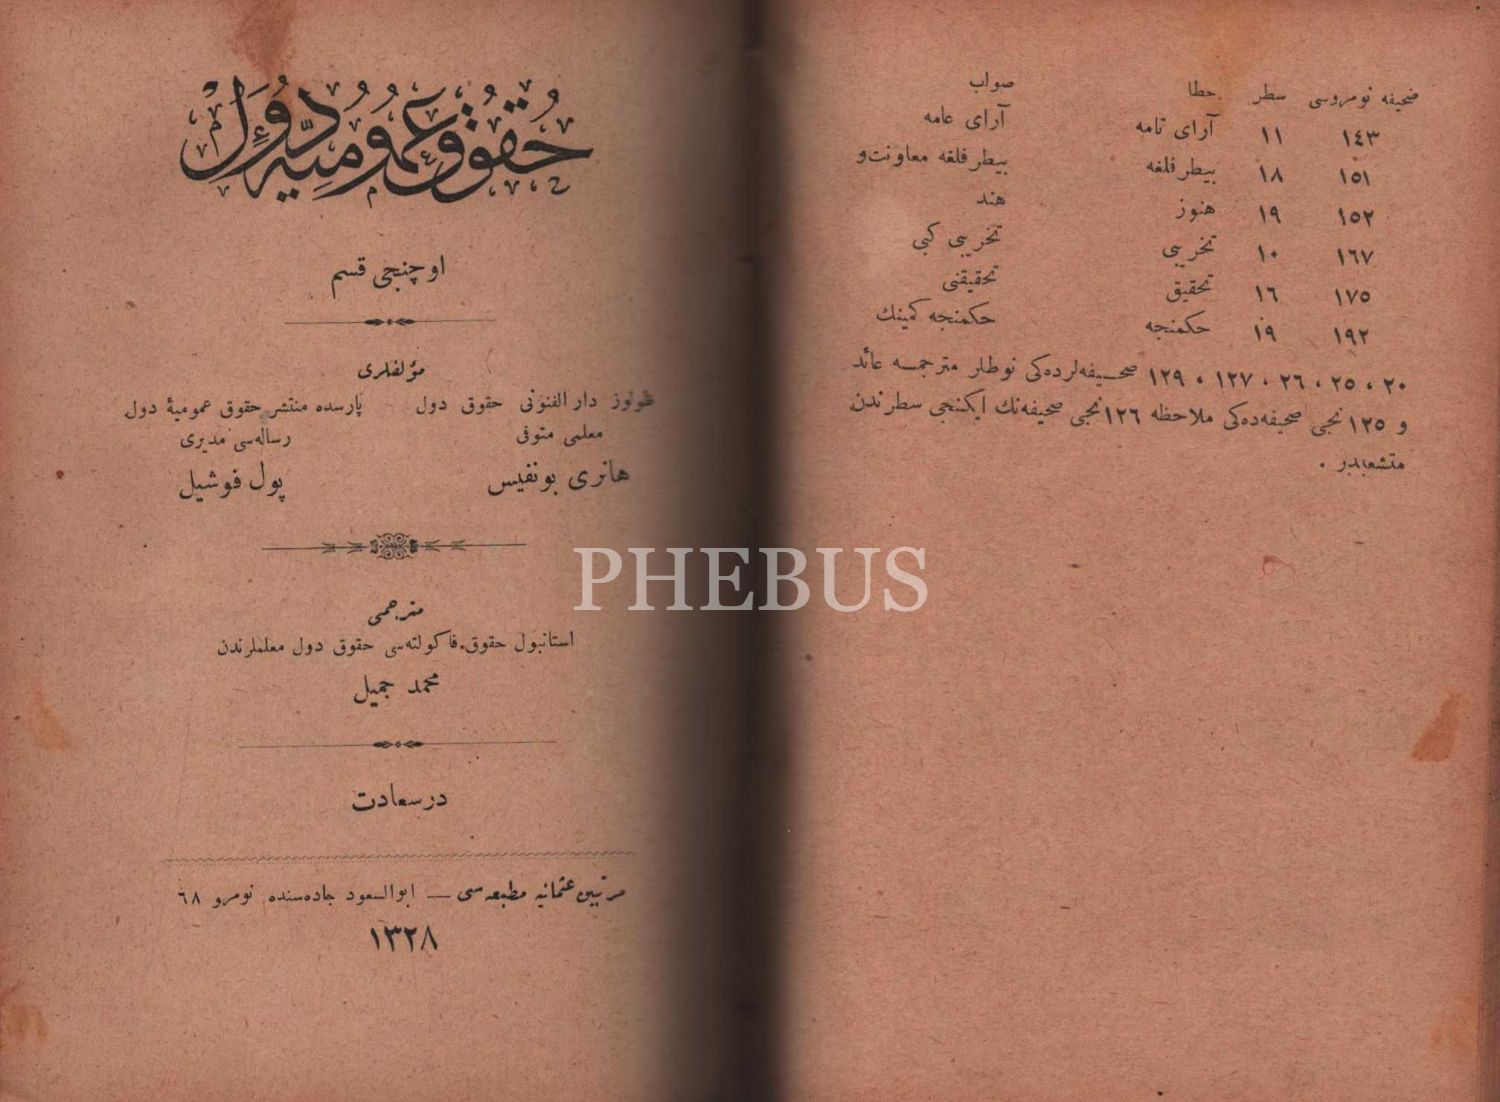 ضحیفه نومروسی سطر خطا صواب
١٤٣ ١١ آرای تامه آرای عامه
١٥١ ١٨ بیطرفلغه بیطرفلغه معاونت و
١٥٢ ١٩ هنوز هند
١٦٧ ١٠ تخریبی تخریبی کبی
١٧٥ ١٦ تحقیق تحقیقنی
١٩٢ ١٩ حکمنجه حکمنجه کمینك
٢٠ ، ٢٥ ، ٢٦ ، ١٢٧ ، ١٢٩ صحیفه‌لرده‌کی نوطلر مترجمه عائد
و ١٢٥ نجی صحیفه‌ده‌کی ملاحظه ١٢٦ نجی صحیفه‌نك ایکنجی سطرندن
متشعبدر .
حقوق عمومیه دول
اوچنجی قسم
مؤلفلری
طولوز دار الفنونی حقوق دول
معلمی متوفی
هانری بونفیس
پارسده منتشر حقوق عمومیهٔ دول
رساله‌سی مدیری
پول فوشیل
مترجمی
استانبول حقوق فاکولته‌سی حقوق دول معلملرندن
محمد جمیل
درسعادت
مرتبین عثمانیه مطبعه‌سی — ابوالسعود جاده‌سنده نومرو ٦٨
١٣٢٨
PHEBUS